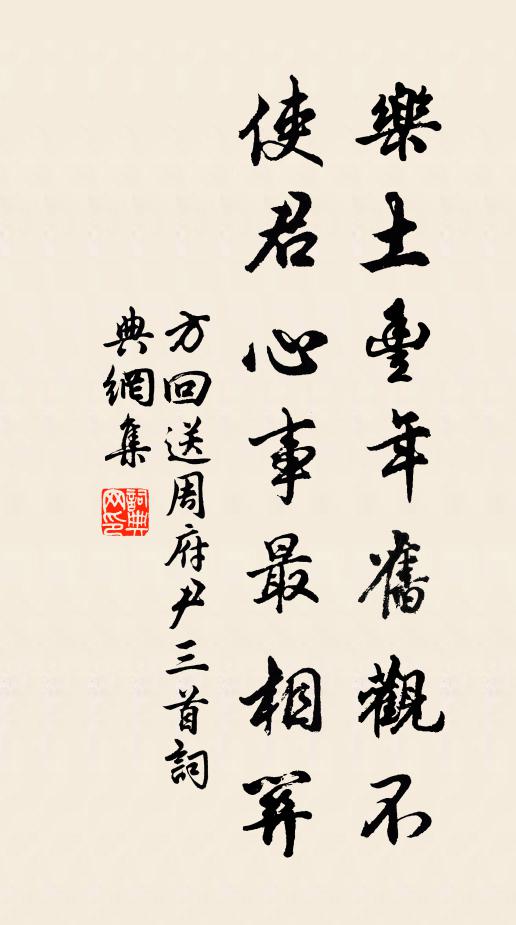 樂土豐年舊觀不
使君心事最相關
方回送周府尹三首詞
典網集
詞典网印